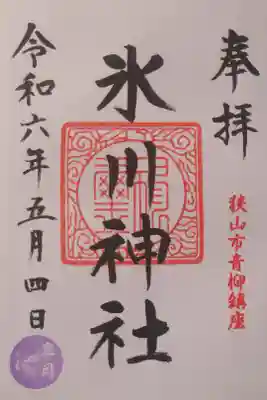 奉拝
狭山市青柳鎮座
氷川神社
令和六年五月四日